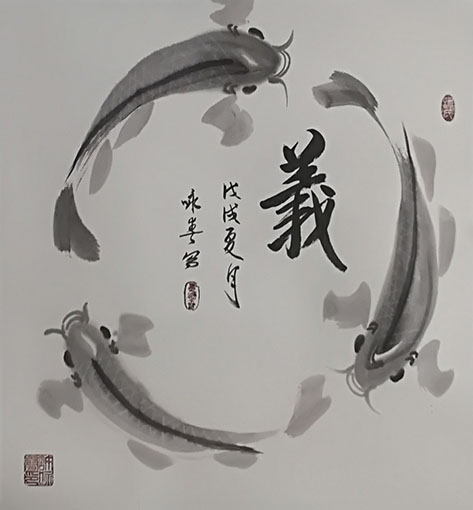 義
戊戌夏月
咏春写